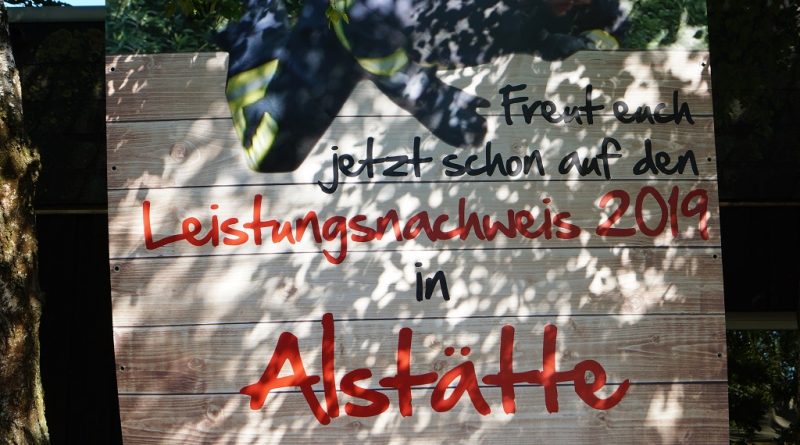 Freut euch
jetzt schon auf den
Leistungsnachweis 2019
in
Alstätte